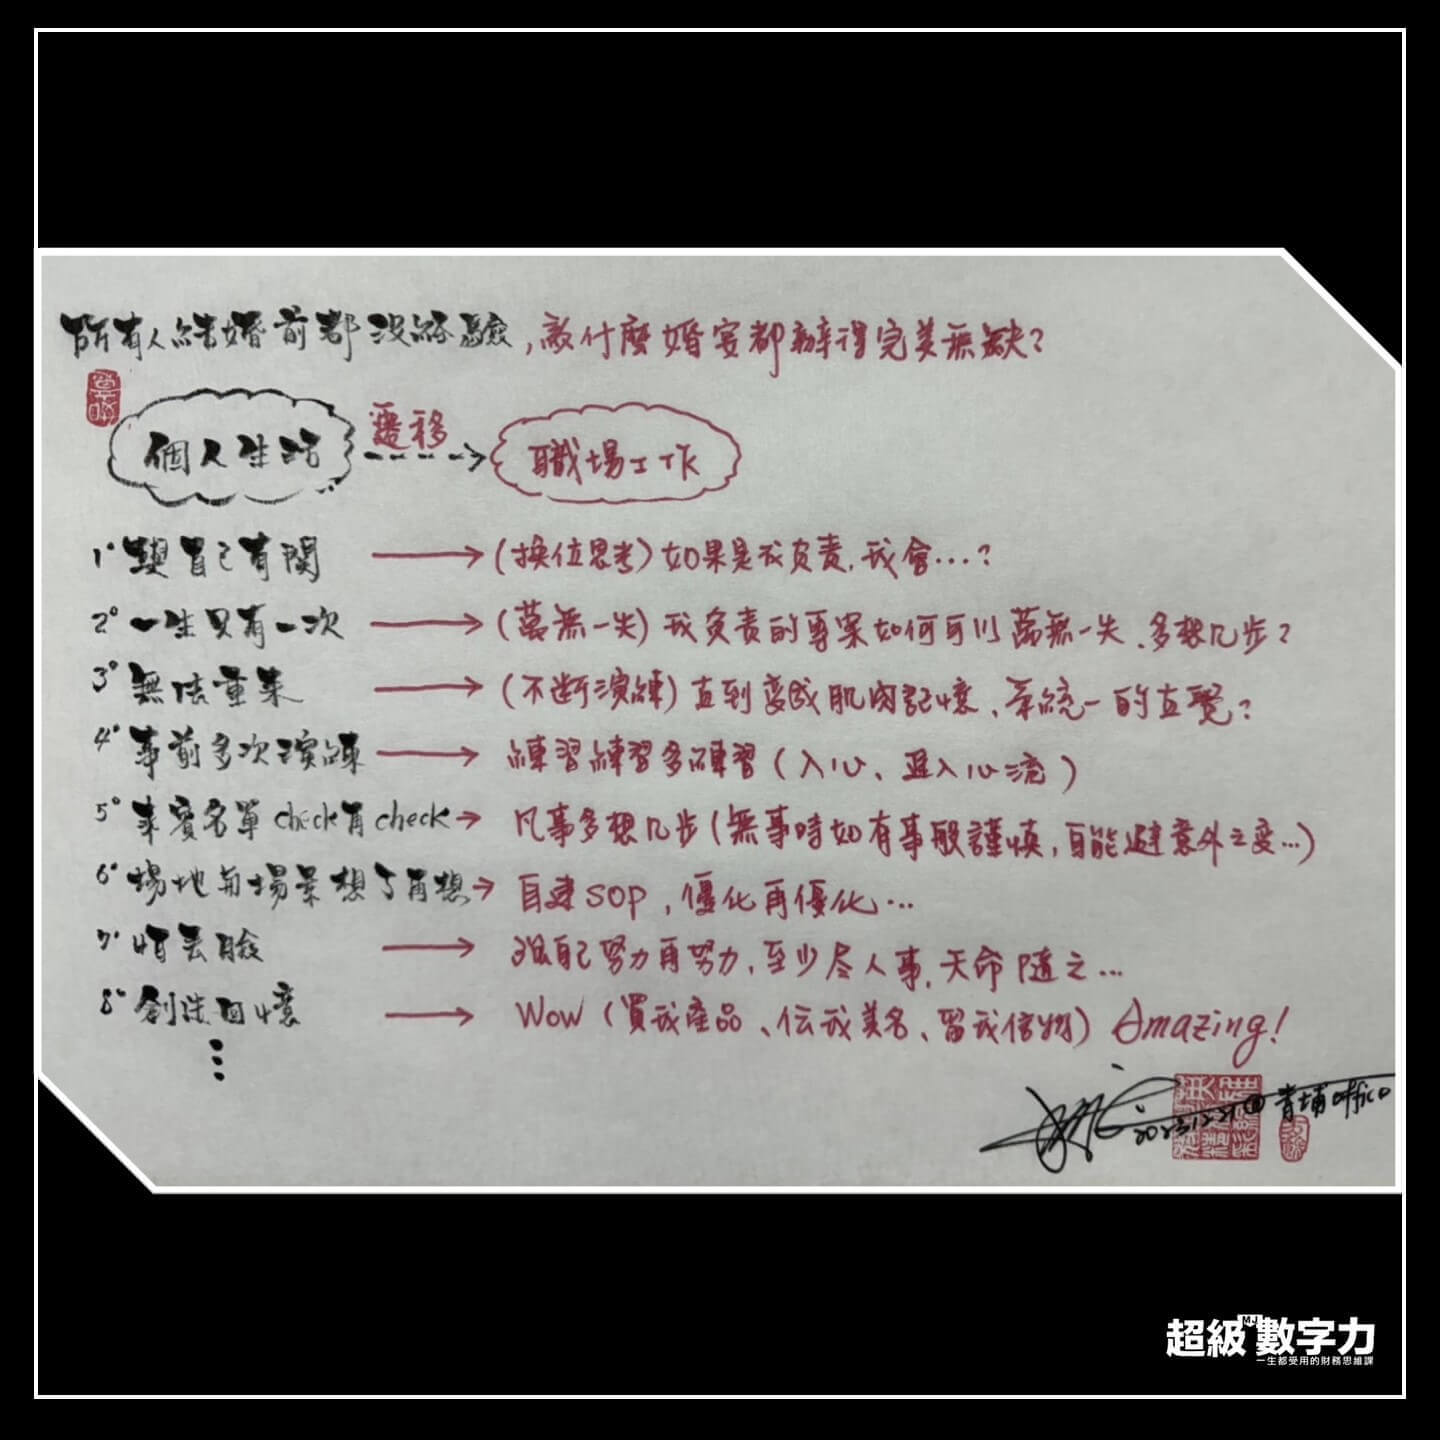 所有人結婚前都沒經驗，為什麼婚宴都辦得完美無缺？
個人生活 遷移 職場工作
1° 與自己有關 → (換位思考) 如果是我负責，我會…？
2° 一生只有一次 → (萬無一失) 我负責的專案如何可以萬無一失、多想几步？
3° 無法重來 → (不断演練) 直到变成肌肉記憶、系統一的直覺？
4° 事前多次演練 → 練習練習多練習（入心、進入心流）
5° 來賓名單 check再check → 凡事多想几步(無事時如有事般謹慎，自能避意外之变…)
6° 場地与場景想了再想 → 自建SOP，優化再優化…
7° 怕丢臉 → 強自己努力再努力，至少尽人事，天命隨之…
8° 創造回憶 → Wow（買我產品、伝我美名、留我信物）Amazing!
⋮
2023.12.21@青埔office
超級MJ數字力
一生都受用的財務思維課